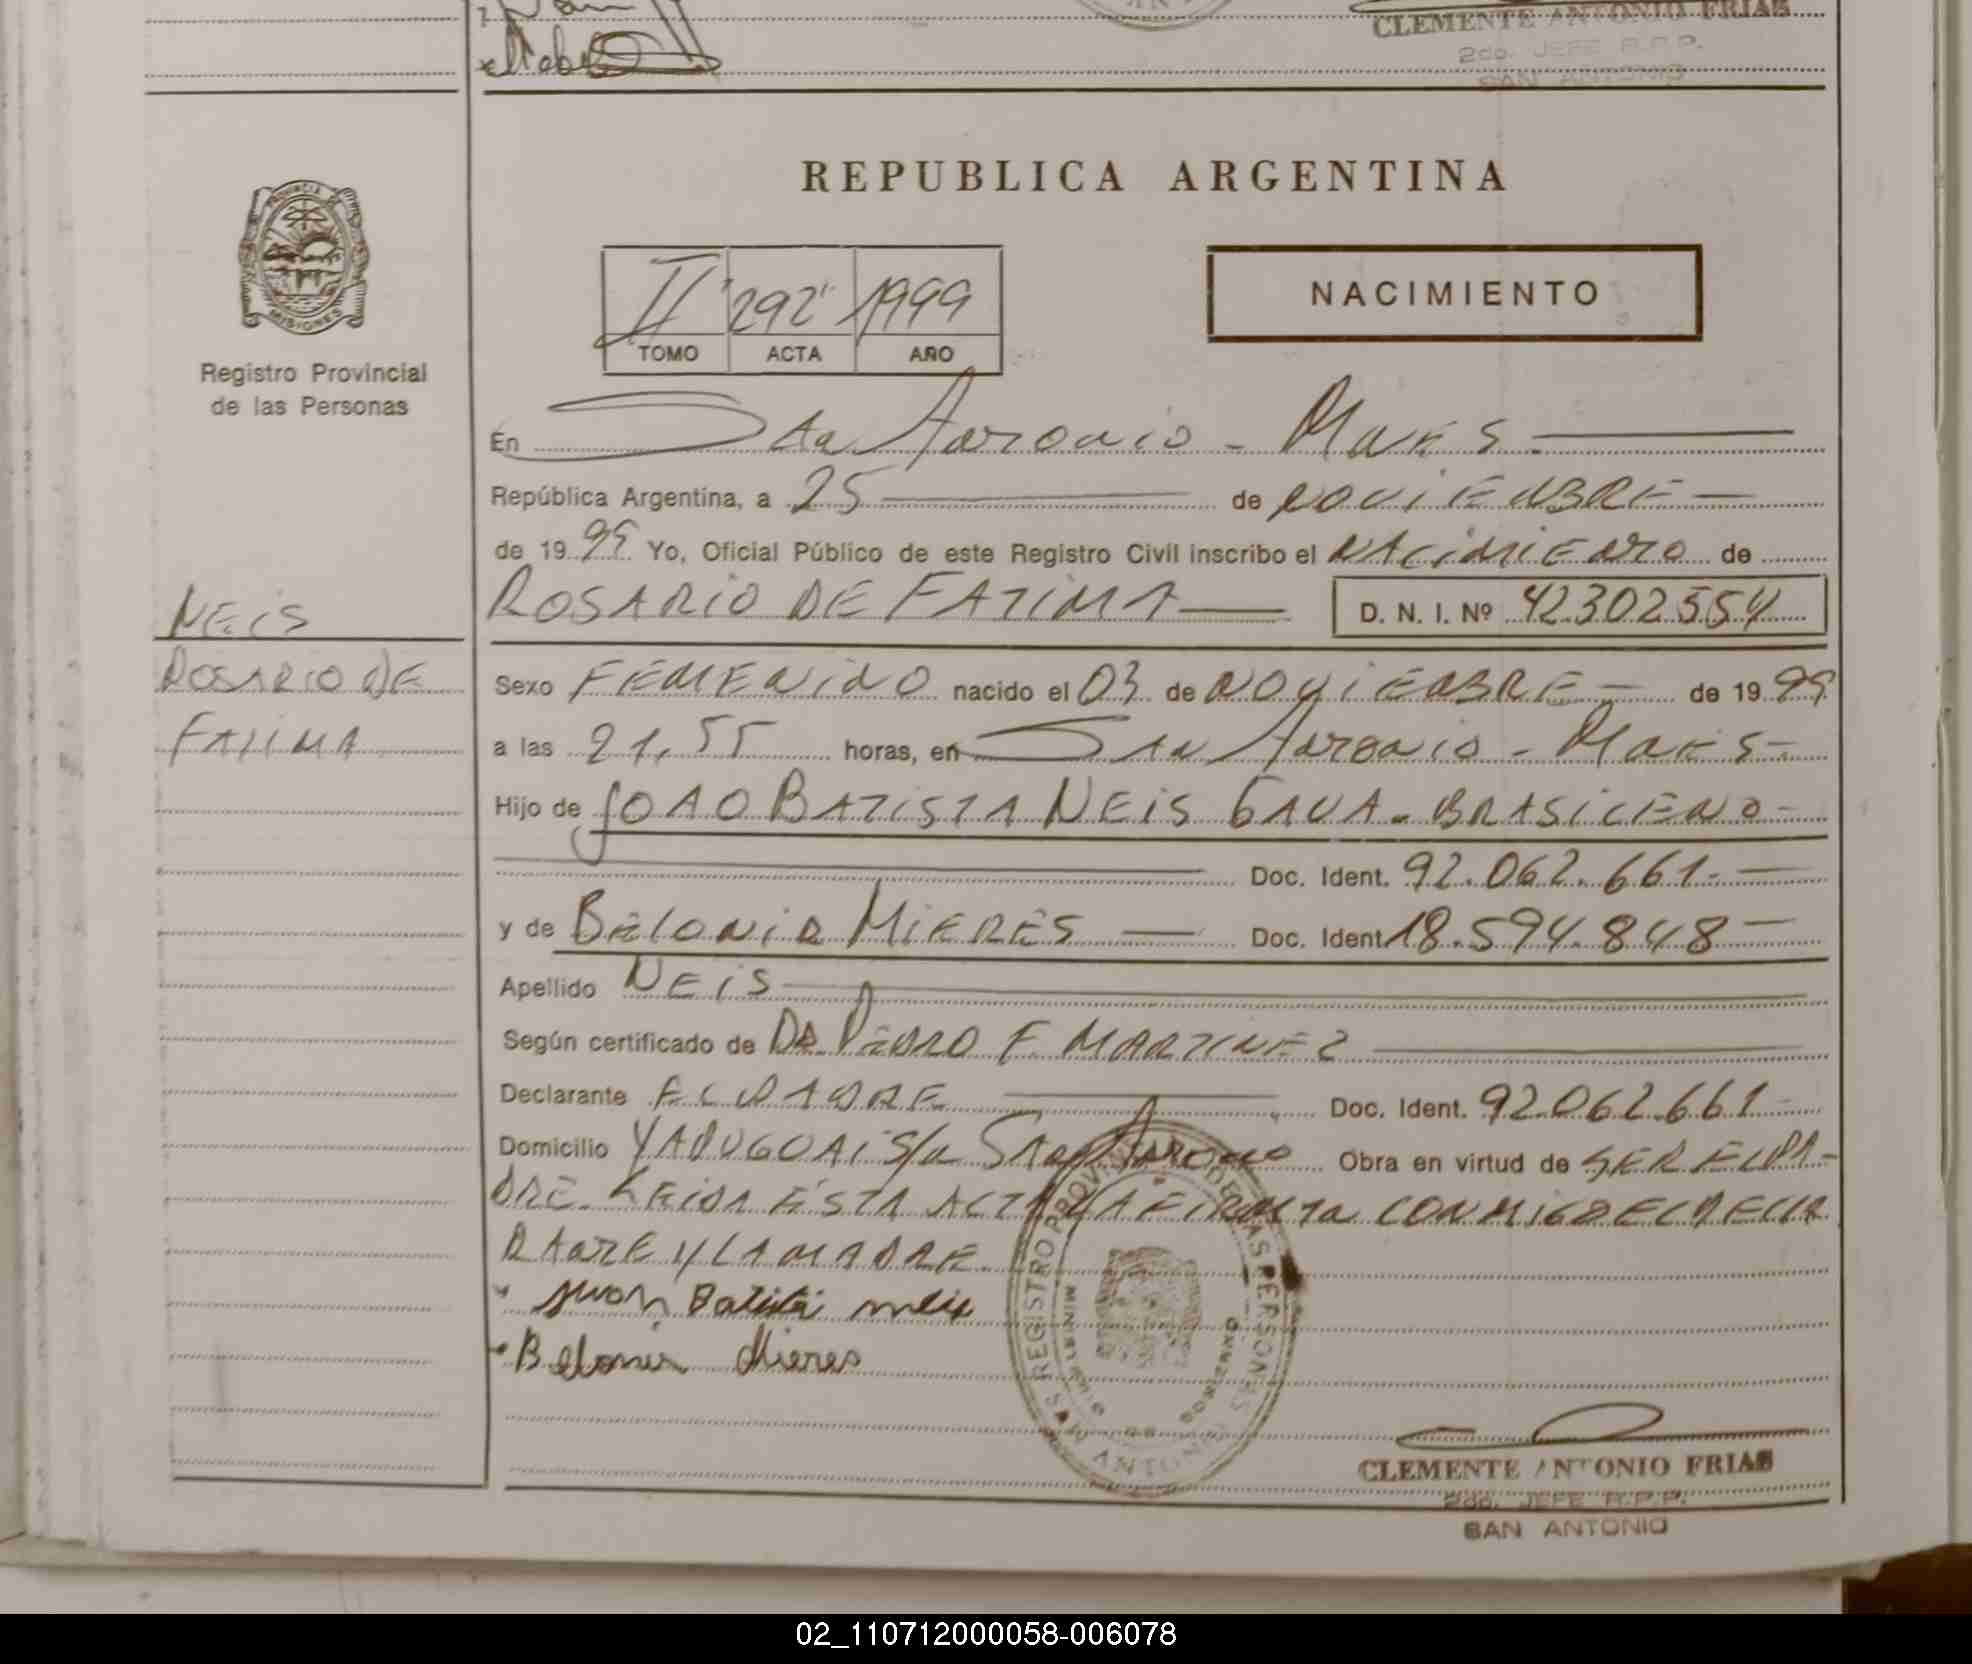 CLEMENTE ANTONIO FRIAS
2do. JEFE R.P.P.
SAN ANTONIO
PROVINCIA DE
MISIONES
Registro Provincial
de las Personas
NEIS
ROSARIO DE
FATIMA
REPUBLICA ARGENTINA
II 292 1999
TOMO ACTA AÑO
NACIMIENTO
En San Antonio - Mnes
República Argentina, a 25 de NOVIEMBRE
de 1999 Yo, Oficial Público de este Registro Civil inscribo el NACIMIENTO de
ROSARIO DE FATIMA D. N. I. Nº 42302554
Sexo FEMENINO nacido el 03 de NOVIEMBRE de 1999
a las 21,55 horas, en San Antonio - Mnes
Hijo de JOAO BATISTA NEIS GAUA - BRASILENO
Doc. Ident. 92.062.661.-
y de BELONIA MIERES Doc. Ident. 18.594.848
Apellido NEIS
Según certificado de DR PEDRO F MARTINEZ
Declarante EL PADRE Doc. Ident. 92.062.661
Domicilio S/n San Antonio Obra en virtud de SER EL PA-
DRE. LEIDA ESTA ACTA LA FIRMA CONMIGO EL DECLA
RANTE Y LA MADRE
Juan Batista neis
Belonia Mieres
REGISTRO PROVINCIAL DE LAS PERSONAS
SAN ANTONIO
CLEMENTE ANTONIO FRIAS
2do. JEFE R.P.P.
SAN ANTONIO
02_110712000058-006078